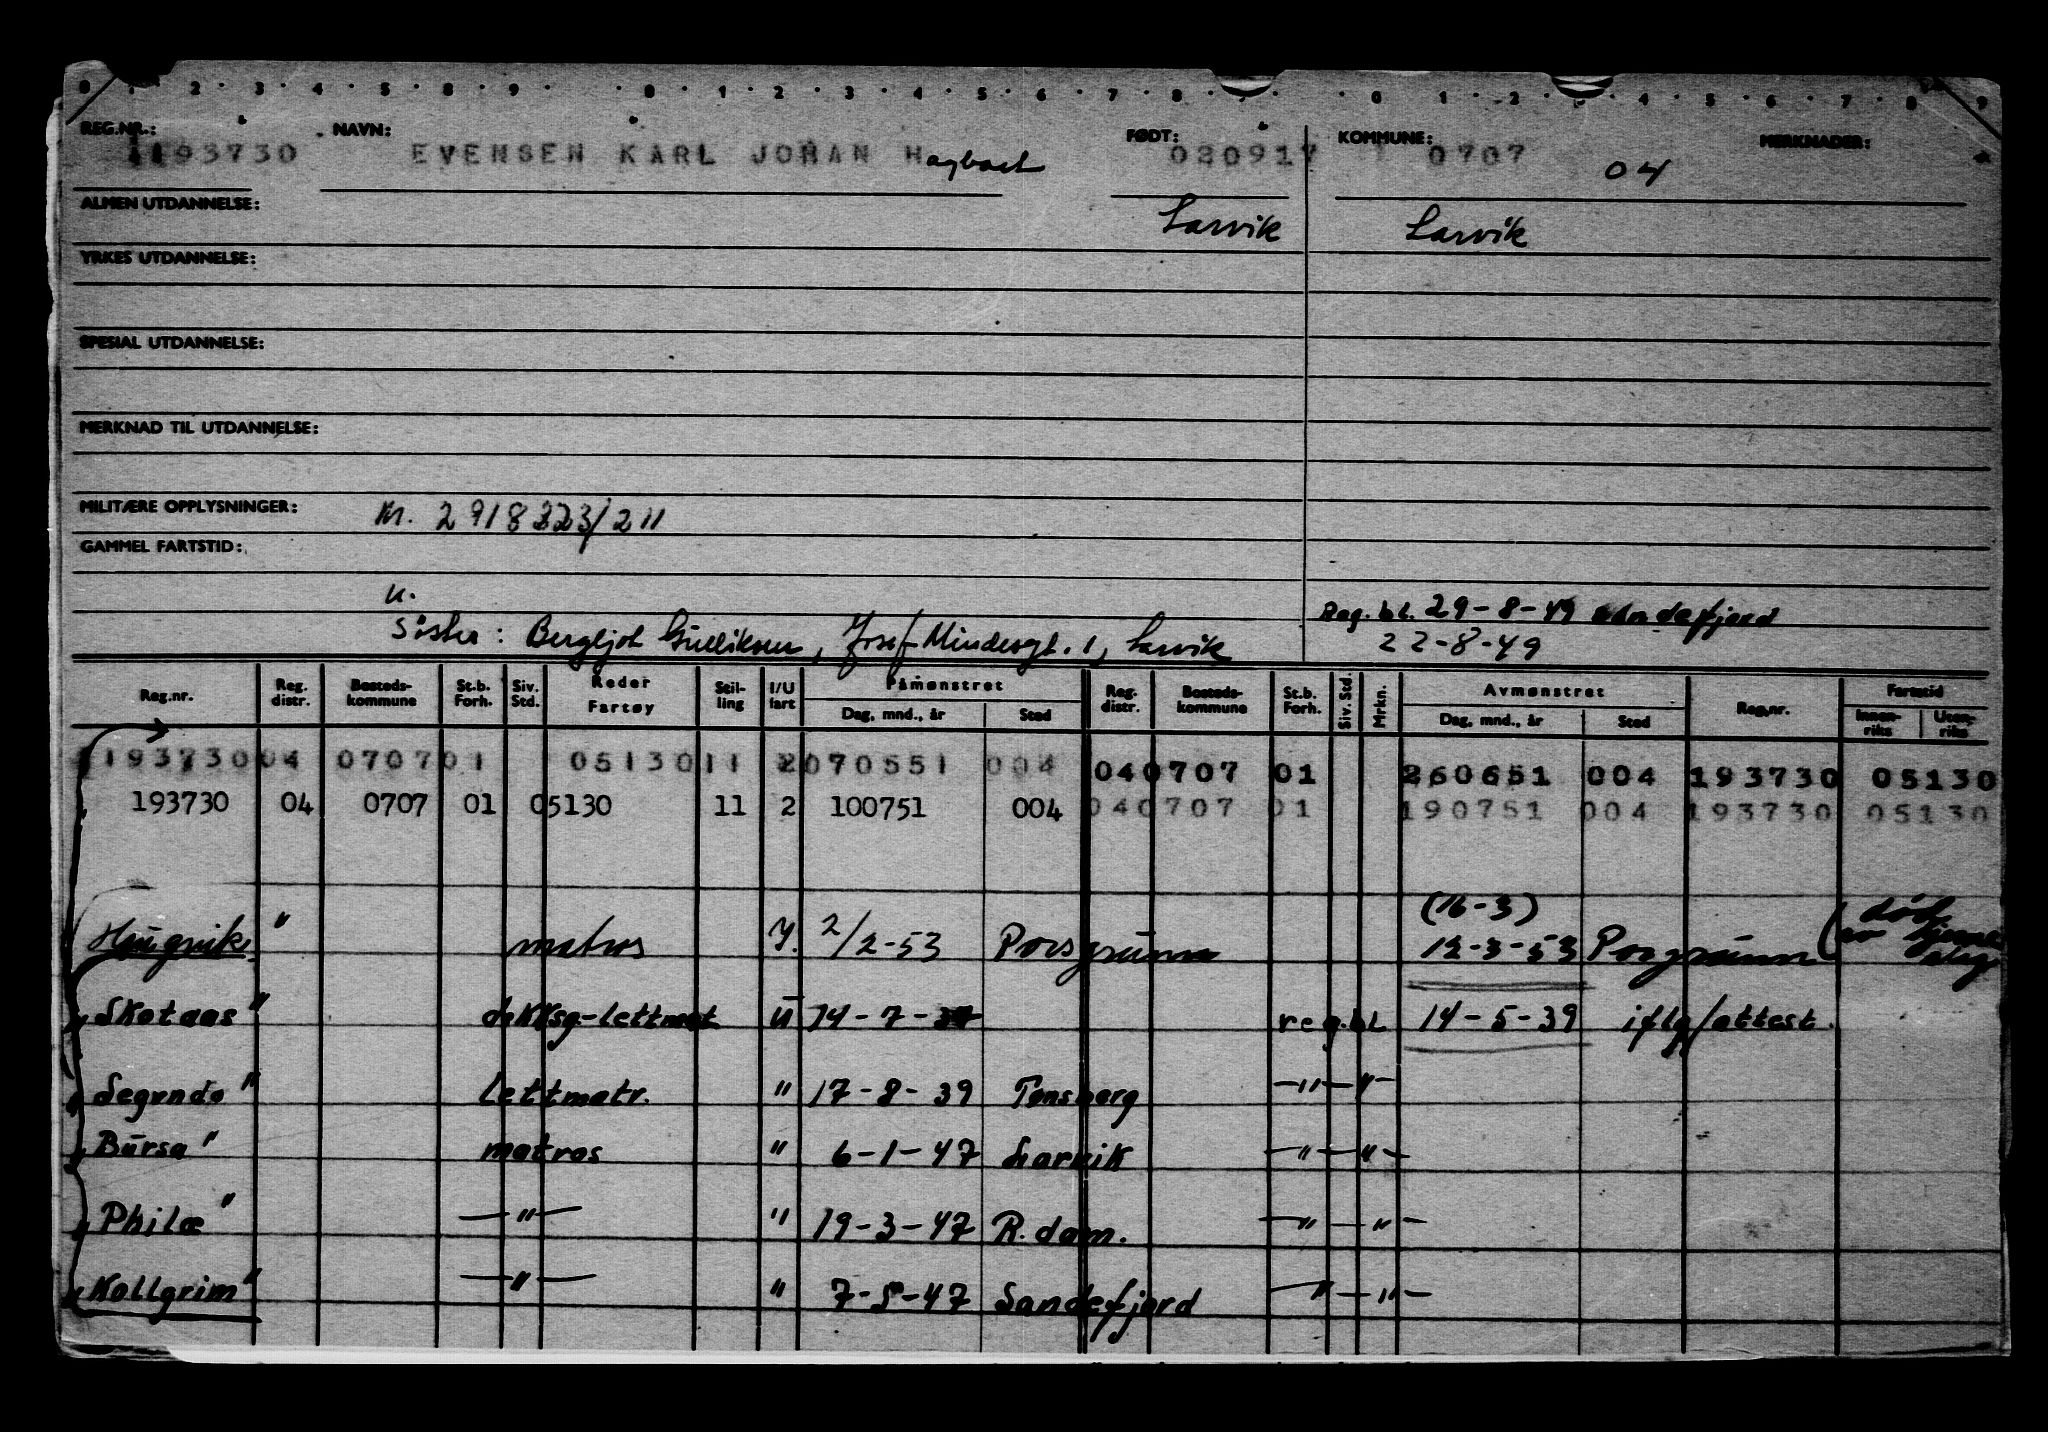 0 1 2 3 4 5 8 9 0 1 2 3 4 5 6 7 8 0 1 2 4 5 6 7 8 9
REG.NR.: NAVN: FØDT: KOMMUNE: MERKNADER:
193730 EVENSEN KARL JOHAN Hagbart 020917 0707 04
ALMEN UTDANNELSE: Larvik Larvik
YRKES UTDANNELSE:
SPESIAL UTDANNELSE:
MERKNAD TIL UTDANNELSE:
MILITÆRE OPPLYSNINGER: M. 2918323/211
GAMMEL FARTSTID:
u.
Reg. bl. 29-8-49 Sandefjord
Søster: Bergljot Gulliksen, Josef Mindesgt. 1, Larvik 22-8-49
Reg.nr. Reg. distr. Bosteds-kommune St.b. Forh. Siv. Std. Reder Fartøy Stil-ling I/U fart Påmønstret Dag, mnd., år Sted Reg. distr. Bosteds-kommune St.b. Forh. Siv. Std. Mrkn. Avmønstret Dag, mnd., år Sted Reg.nr. Fartstid Innen-riks Uten-riks
193730 04 0707 01 05130 11 2 070551 004 04 0707 01 260651 004 193730 05130
193730 04 0707 01 05130 11 2 100751 004 04 0707 01 190751 004 193730 05130
(16-3) død
Haugvik " matros 2/2-53 Porsgrunn 12-3-53 Porsgrunn (av hjerneslag
Skotaas " dekksg-lettmat u 14-7- reg.bl 14-5-39 iflg/attest.
Segundo " Lettmatr. " 17-8-39 Tønsberg —"— "—
Bursa " matros " 6-1-47 Larvik —"— "—
Philæ " —"— " 19-3-47 R.dam. —"— "—
Kollgrim " —"— " 7-5-47 Sandefjord —"— "—